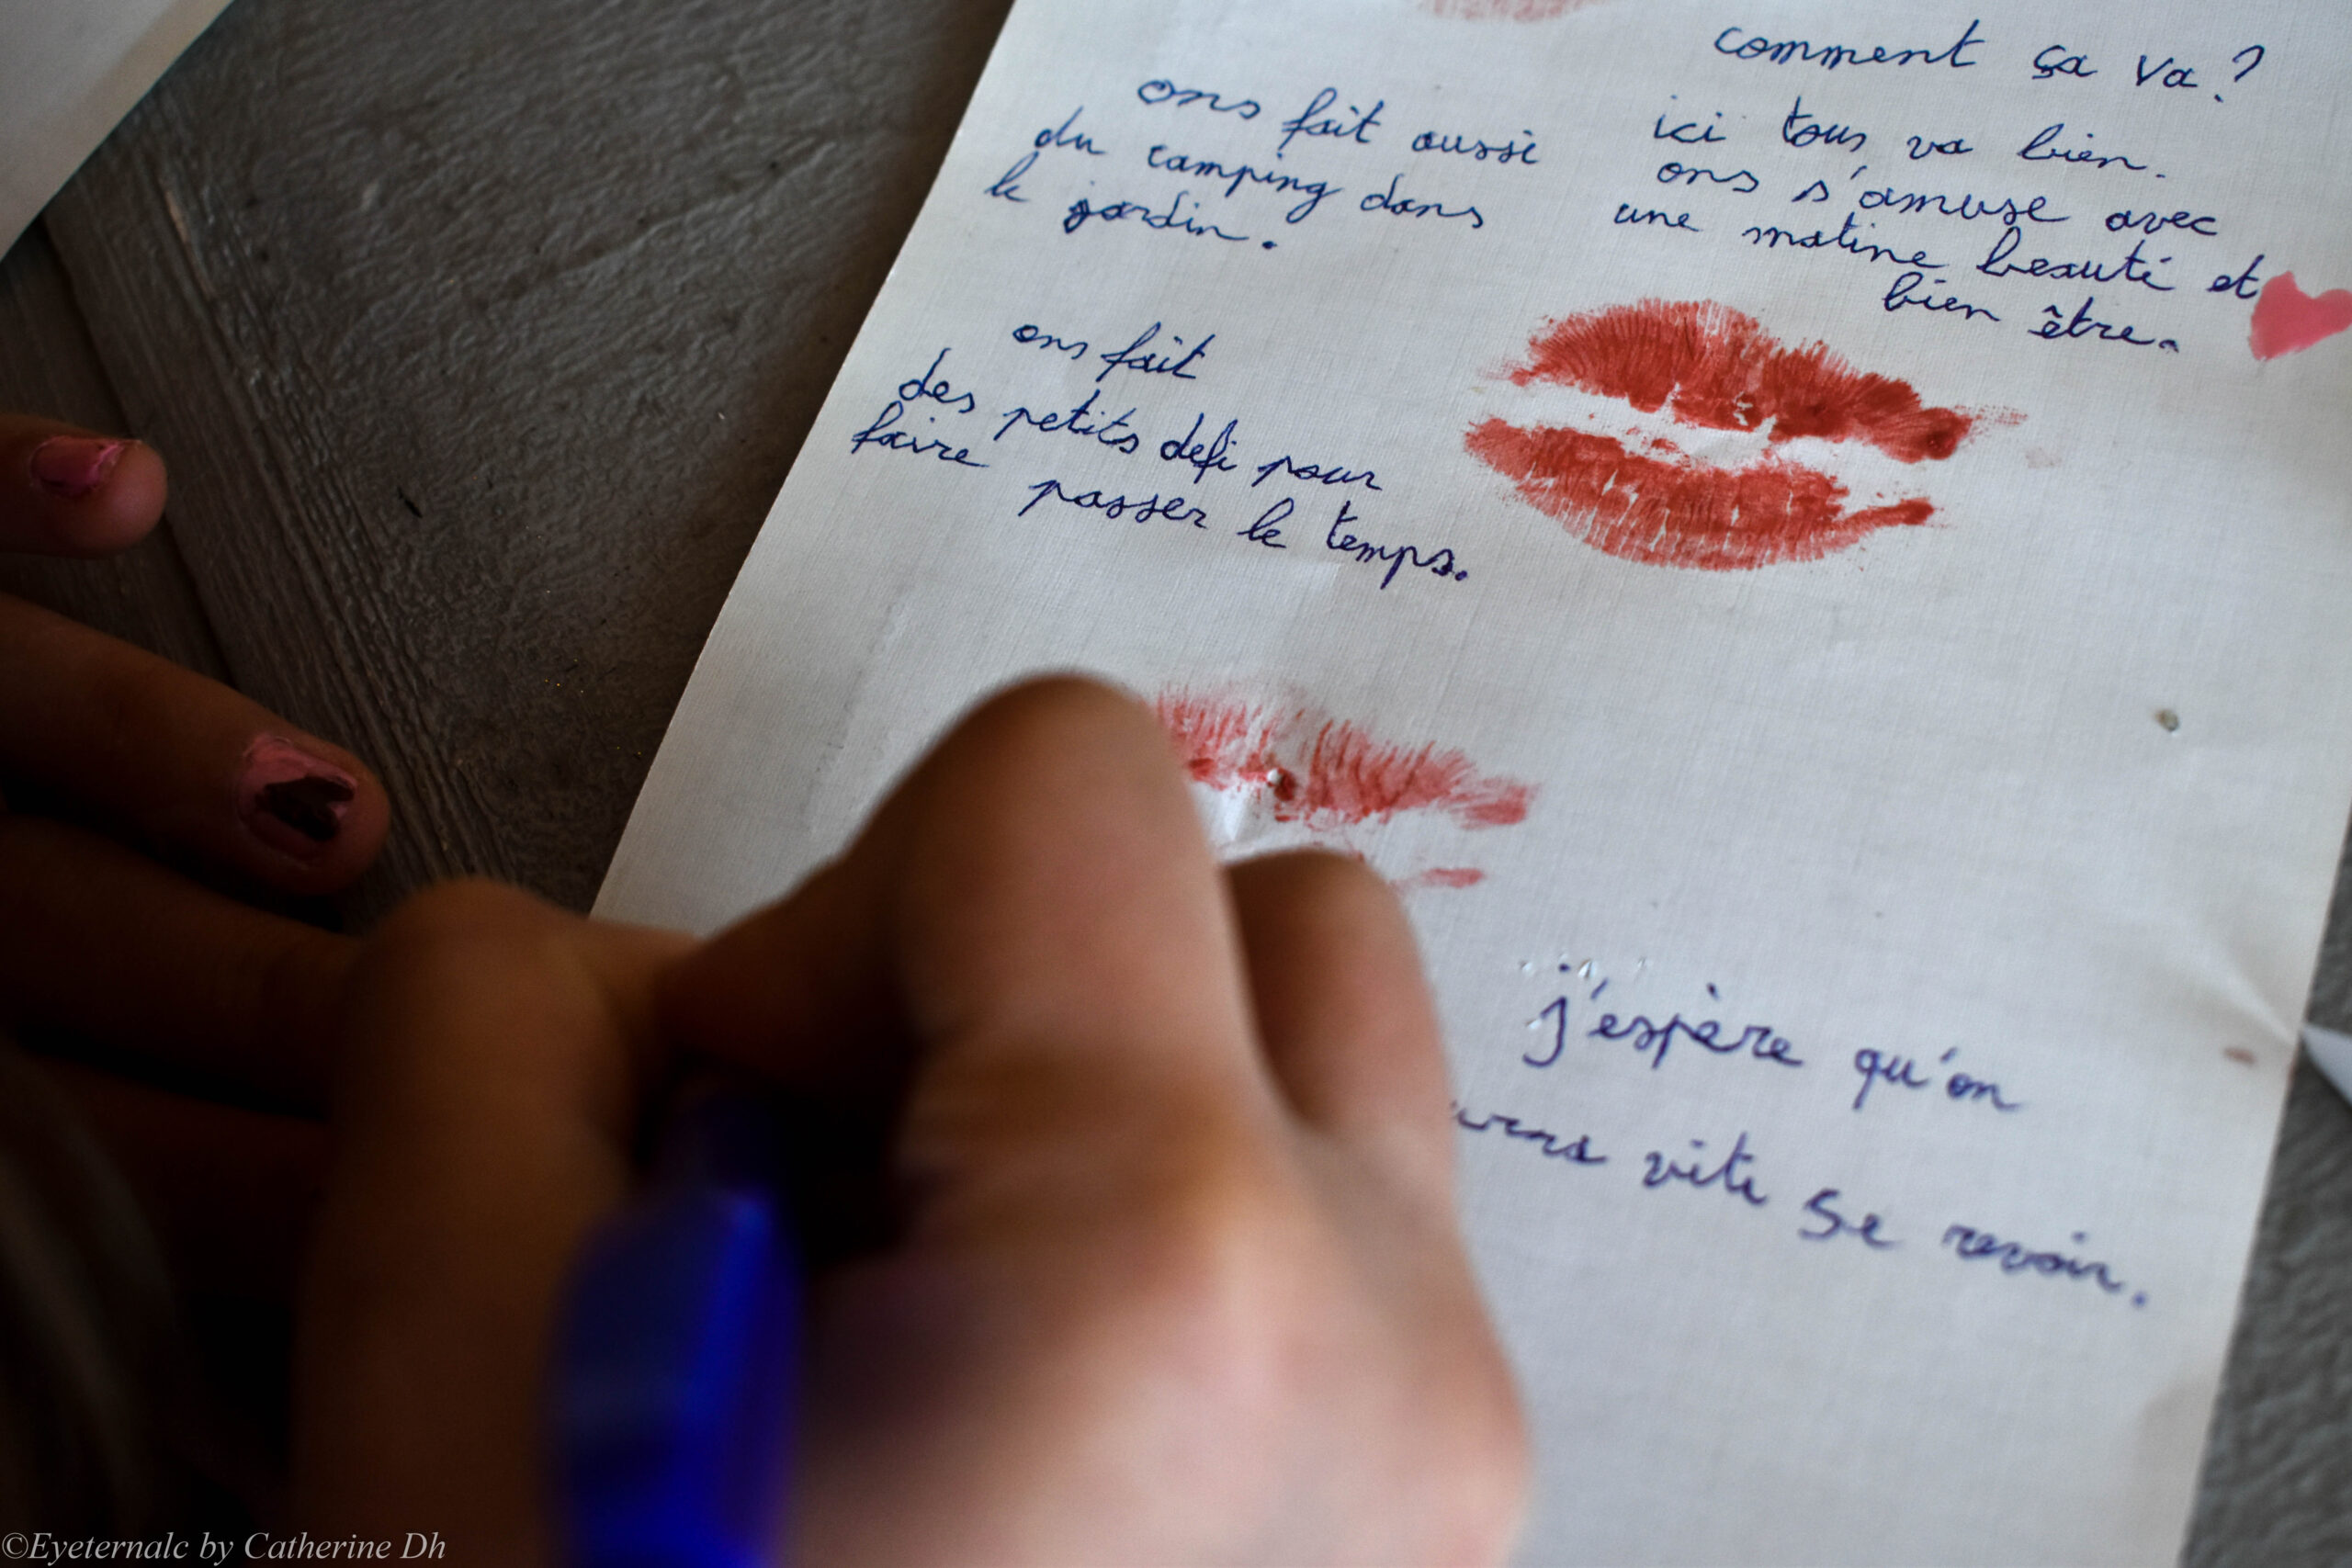 comment ça va?
ici tous va bien.
ons s'amuse avec
une matine beauté et
bien être.
ons fait aussi
du camping dans
le jardin.
ons fait
des petits defi pour
faire passer le temps.
j'espère qu'on
vite se revoir.
©Eyeternalc by Catherine Dh